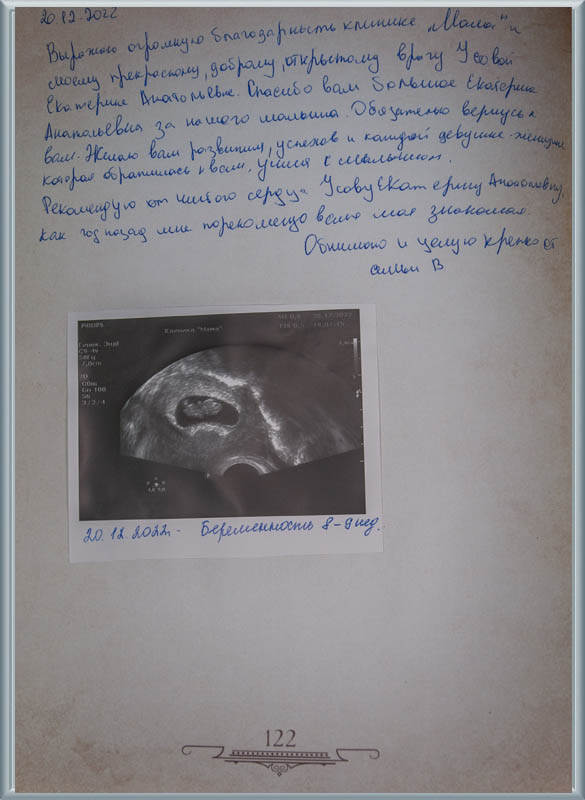 20.12.2022
Выражаю огромную благодарность клинике "Мама" и
моему прекрасному, доброму, открытому врачу Усовой
Екатерине Анатольевне. Спасибо вам большое Екатерина
Анатольевна за нашего малыша. Обязательно вернусь к
вам. Желаю вам развития, успехов и каждой девушке-женщине
которая обратилась к вам, уйти с малышом.
Рекомендую от чистого сердца Усову Екатерину Анатольевну,
как год назад мне порекомендовала моя знакомая.
Обнимаю и целую крепко от
семьи В
PHILIPS
Клиника "Мама"
MI 0,1 20.12.2022
TIS 0,5
Гинек. Энд/
C9-4v
58Гц
7,0cm
2D
Общ
Gn 100
56
3/2/4
20.12.2022г- Беременность 8-9нед.
122